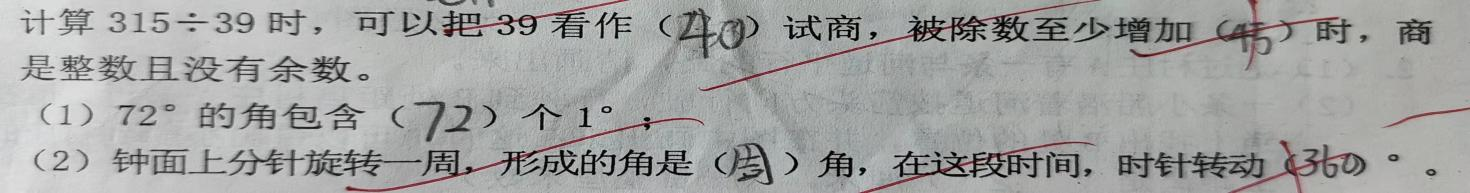 计算 315÷39 时，可以把 39 看作（40）试商，被除数至少增加（45）时，商
是整数且没有余数。
（1）72° 的角包含（72）个 1°；
（2）钟面上分针旋转一周，形成的角是（周）角，在这段时间，时针转动（360）°。